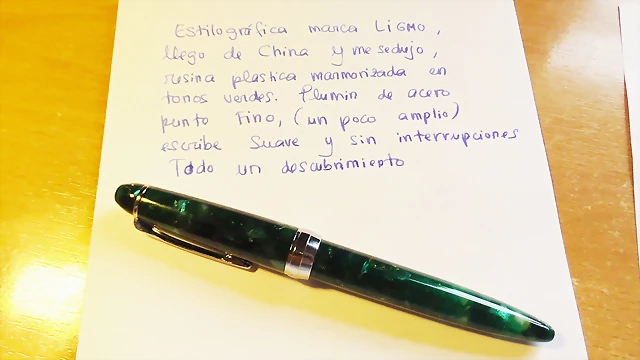 Estilográfica marca LiGMO,
llego de China y me sedujo,
resina plastica marmorizada en
tonos verdes. Plumin de acero
punto Fino, (un poco amplio)
escribe Suave y sin interrupciones
Todo un descubrimiento